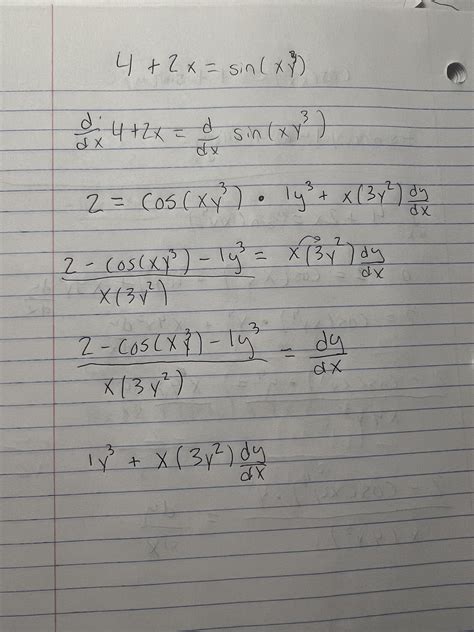 4 + 2x = sin(xy³)
d/dx 4+2x = d/dx sin(xy³)
2 = cos(xy³) • 1y³ + x(3y²) dy/dx
2 - cos(xy³) - 1y³ / x(3y²) = x(3y²) dy/dx
2 - cos(xy³) - 1y³ / x(3y²) = dy/dx
1y³ + x(3y²) dy/dx